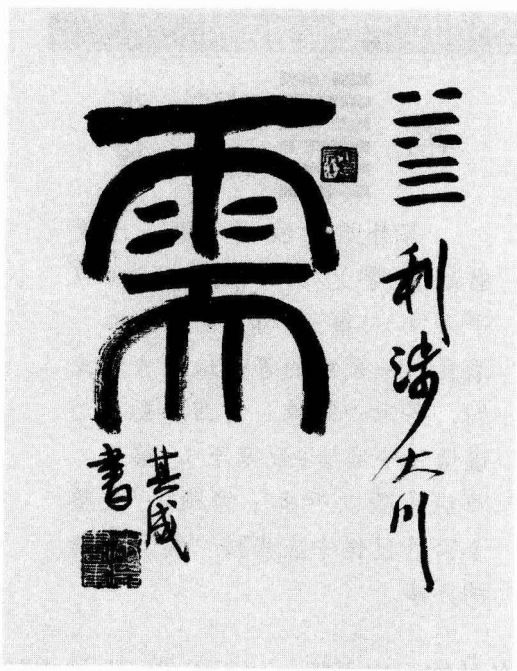 ䷄ 利涉大川
需
其成
書